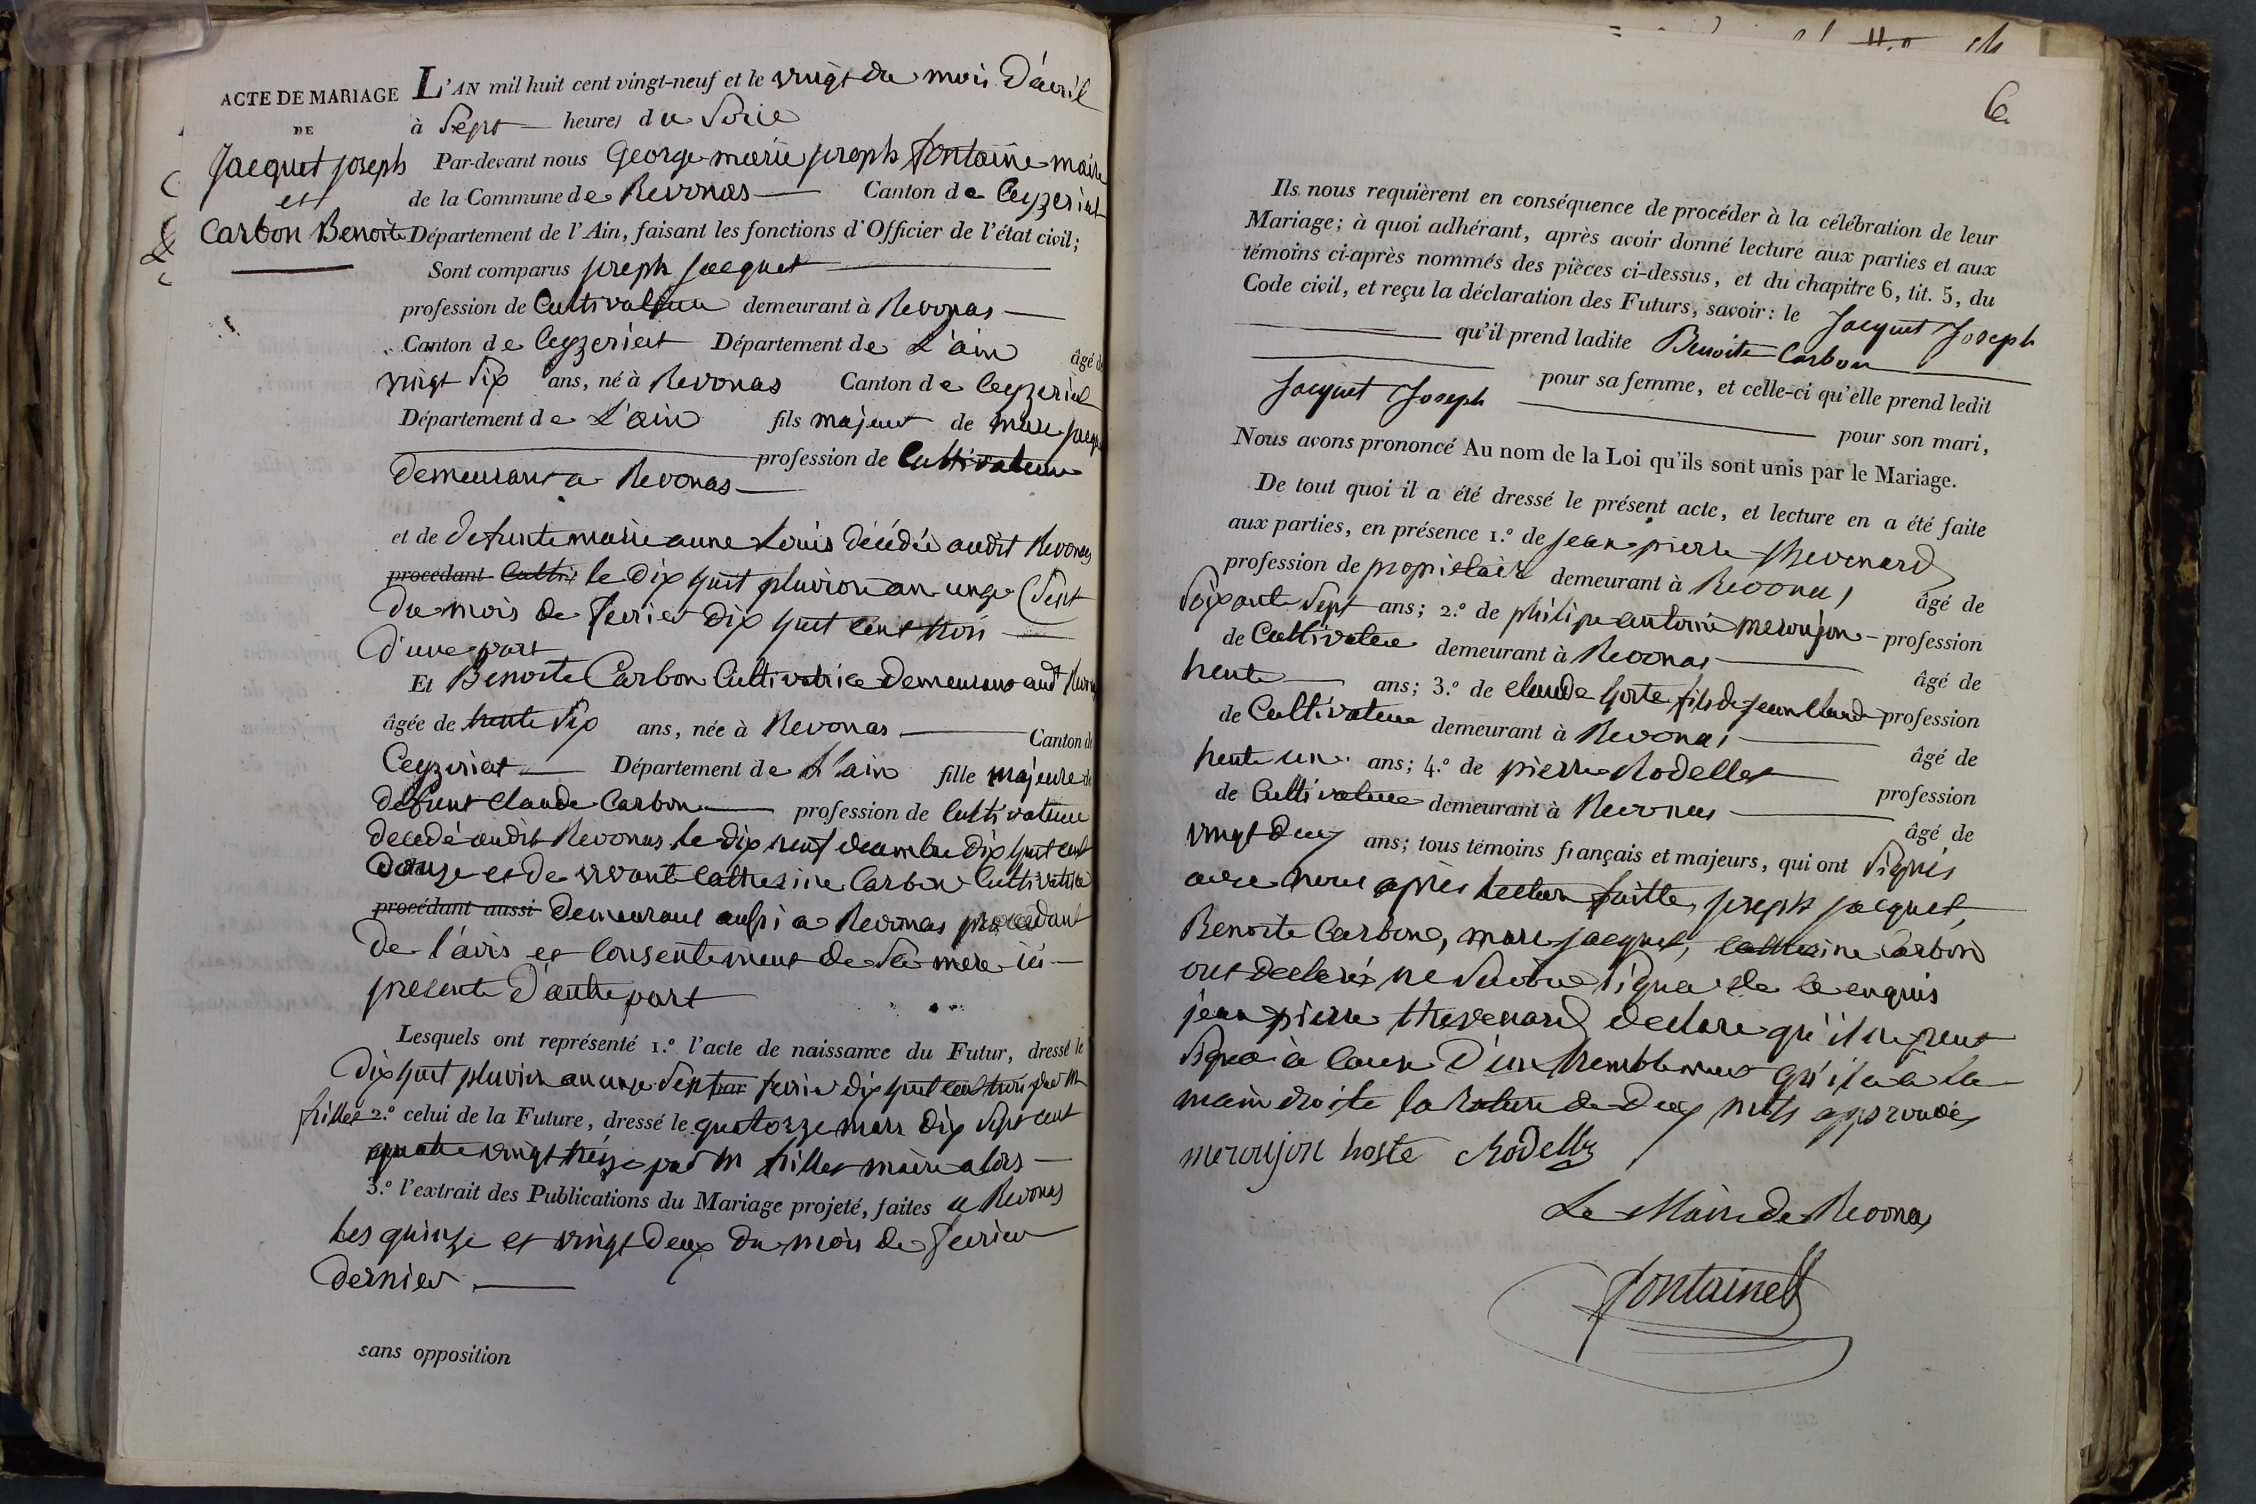 ACTE DE MARIAGE
DE
Jacquet joseph
et
Carbon Benoite
L'AN mil huit cent vingt-neuf et le vingt du mois D'avril
à Sept heures du Soire
Par-devant nous George marie joseph fontaine maire
de la Commune de Revonas Canton de Ceyzeriat
Département de l'Ain, faisant les fonctions d'Officier de l'état civil;
Sont comparus joseph jacquet
profession de Cultivateur demeurant à Revonas
Canton de Ceyzeriat Département de L'ain âgé de
vingt Six ans, né à Revonas Canton de Ceyzeriat
Département de L'ain fils majeur de marc jacquet
profession de Cultivateur
Demeurant a Revonas
et de defunte marie anne Louis décédée audit Revonas
procédant Cultiv le Dix huit pluviose an onze (Sept
Du mois de fevrier Dix huit cent trois
D'une part
Et Benoite Carbon Cultivatrice Demeurant audt Revonas
âgée de trente Six ans, née à Revonas Canton de
Ceyzeriat Département de L'ain fille majeure de
defunt Claude Carbon profession de Cultivateur
decedé audit Revonas le dix neuf decembre Dix huit cent
douze et de vivante Catherine Carbon Cultivatrice
procédant aussi Demeurant aussi a Revonas procedant
De l'avis et Consentement de Sa mere ici
presente D'autre part
Lesquels ont représenté 1.º l'acte de naissance du Futur, dressé le
Dix huit pluviose an onze Sept fevrier dix huit cent trois par M
frillet 2.º celui de la Future, dressé le quatorze mars Dix Sept cent
quatre vingt treize par M frillet maire alors
3.º l'extrait des Publications du Mariage projeté, faites a Revonas
Les quinze et vingt Deux Du mois de fevrier
Dernier
sans opposition
6
Ils nous requièrent en conséquence de procéder à la célébration de leur
Mariage; à quoi adhérant, après avoir donné lecture aux parties et aux
témoins ci-après nommés des pièces ci-dessus, et du chapitre 6, tit. 5, du
Code civil, et reçu la déclaration des Futurs, savoir: le Jacquet Joseph
qu'il prend ladite Benoite Carbon
pour sa femme, et celle-ci qu'elle prend ledit
Jacquet Joseph pour son mari,
Nous avons prononcé Au nom de la Loi qu'ils sont unis par le Mariage.
De tout quoi il a été dressé le présent acte, et lecture en a été faite
aux parties, en présence 1.º de jean pierre thevenard
profession de propriétaire demeurant à Revonas âgé de
Soixante Sept ans; 2.º de philipe antoine meroujon profession
de Cultivateur demeurant à Revonas âgé de
trente ans; 3.º de Claude hoste fils de jean Claude profession
de Cultivateur demeurant à Revonas âgé de
trente un ans; 4.º de pierre Rodellet profession
de Cultivateur demeurant à Revonas âgé de
vingt Deux ans; tous témoins français et majeurs, qui ont Signés
avec nous après lecture faitte, joseph jacquet,
Benoite Carbone, marc jacquet, Catherine Carbon
ont declarés ne Savoir signer de ce enquis
jean pierre thevenard declare qu'il ne peut
Signer à Cause D'un tremblement qu'il a à la
main droite la rature de Deux mots approuvée
meroujon hoste Rodellet
Le Maire de Revonas
fontaine